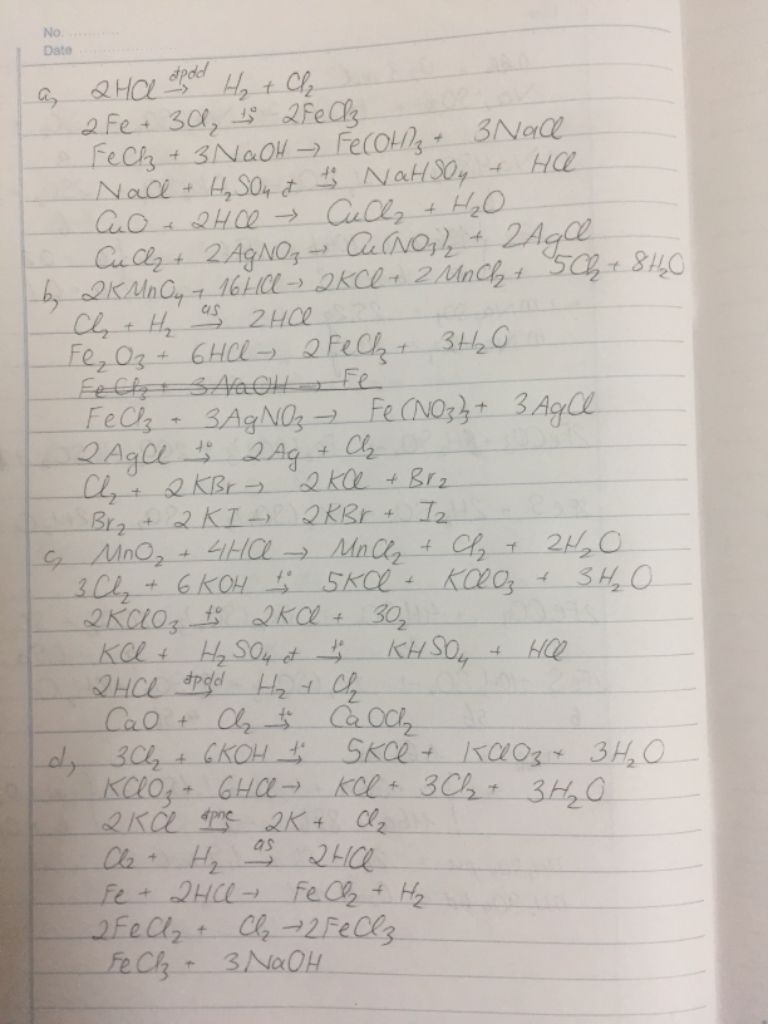 No. ............
Date ............
a, 2HCl đpdd→ H₂ + Cl₂
2Fe + 3Cl₂ t°→ 2FeCl₃
FeCl₃ + 3NaOH → Fe(OH)₃ + 3NaCl
NaCl + H₂SO₄ đ t°→ NaHSO₄ + HCl
CuO + 2HCl → CuCl₂ + H₂O
CuCl₂ + 2AgNO₃ → Cu(NO₃)₂ + 2AgCl
b, 2KMnO₄ + 16HCl → 2KCl + 2MnCl₂ + 5Cl₂ + 8H₂O
Cl₂ + H₂ as→ 2HCl
Fe₂O₃ + 6HCl → 2FeCl₃ + 3H₂O
FeCl₃ + 3NaOH → Fe
FeCl₃ + 3AgNO₃ → Fe(NO₃)₃ + 3AgCl
2AgCl t°→ 2Ag + Cl₂
Cl₂ + 2KBr → 2KCl + Br₂
Br₂ + 2KI → 2KBr + I₂
c, MnO₂ + 4HCl → MnCl₂ + Cl₂ + 2H₂O
3Cl₂ + 6KOH t°→ 5KCl + KClO₃ + 3H₂O
2KClO₃ t°→ 2KCl + 3O₂
KCl + H₂SO₄ đ t°→ KHSO₄ + HCl
2HCl đpdd→ H₂ + Cl₂
CaO + Cl₂ t°→ CaOCl₂
d, 3Cl₂ + 6KOH t°→ 5KCl + KClO₃ + 3H₂O
KClO₃ + 6HCl → KCl + 3Cl₂ + 3H₂O
2KCl đpnc→ 2K + Cl₂
Cl₂ + H₂ as→ 2HCl
Fe + 2HCl → FeCl₂ + H₂
2FeCl₂ + Cl₂ → 2FeCl₃
FeCl₃ + 3NaOH